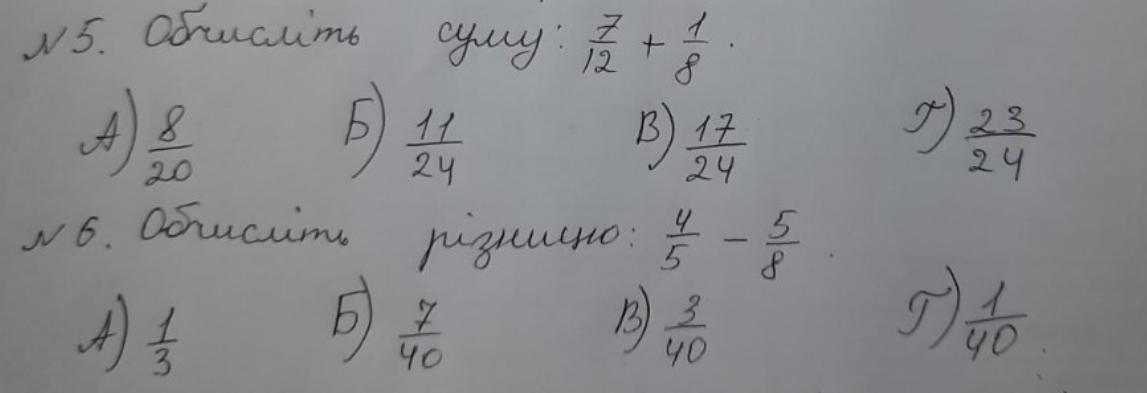 №5. Обчисліть суму: 7/12 + 1/8.
А) 8/20 Б) 11/24 В) 17/24 Г) 23/24
№6. Обчисліть різницю: 4/5 - 5/8.
А) 1/3 Б) 7/40 В) 3/40 Г) 1/40.